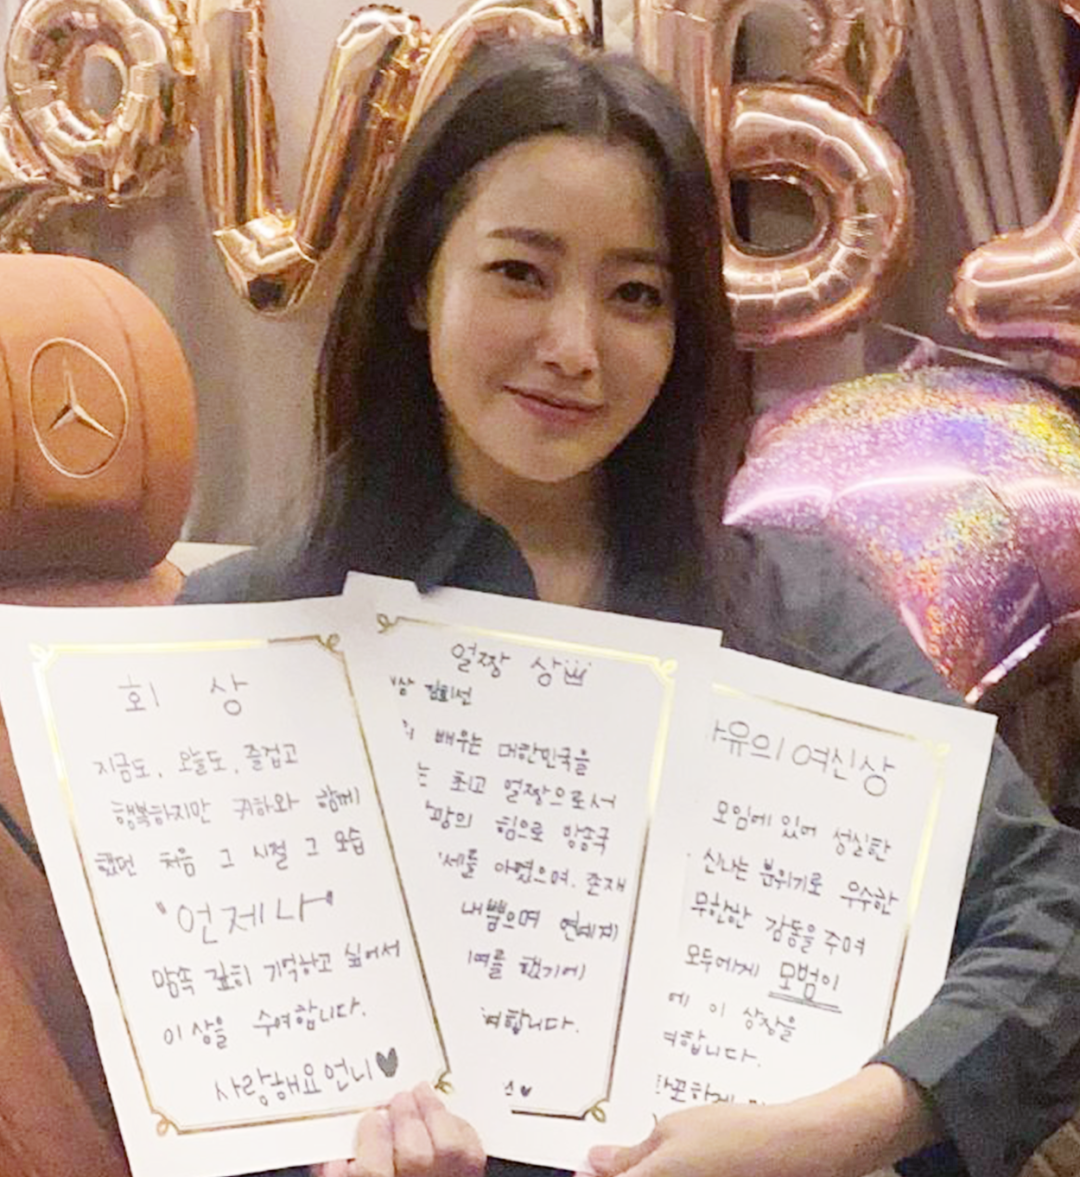 회 상
지금도, 오늘도, 즐겁고
행복하지만 귀하와 함께
했던 처음 그 시절 그 모습
"언제나"
맘속 깊히 기억하고 싶어서
이 상을 수여합니다.
사랑해요 언니♥
얼짱 상
김희선
배우는 대한민국을
는 최고 얼짱으로서
힘으로 방송국
세를 아꼈으며, 존재
내뿜으며 연예계
여를 했기에
여합니다.
자유의 여신상
모임에 있어 성실한
신나는 분위기로 우수한
무한한 감동을 주며
모두에게 모범이
에 이 상장을
여합니다.